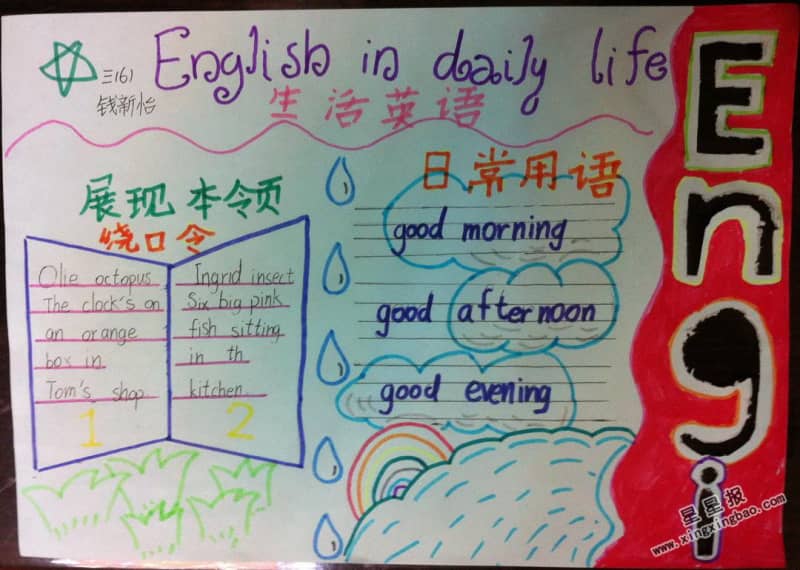 English in daily life
三(6)
钱新怡
生活英语
展现本令页
绕口令
Olie octopus
The clock's on
an orange
box in
Tom's shop.
1
Ingrid insect
Six big pink
fish sitting
in th
kitchen.
2
日常用语
good morning
good afternoon
good evening
Engi
星星报
www.xingxingbao.com